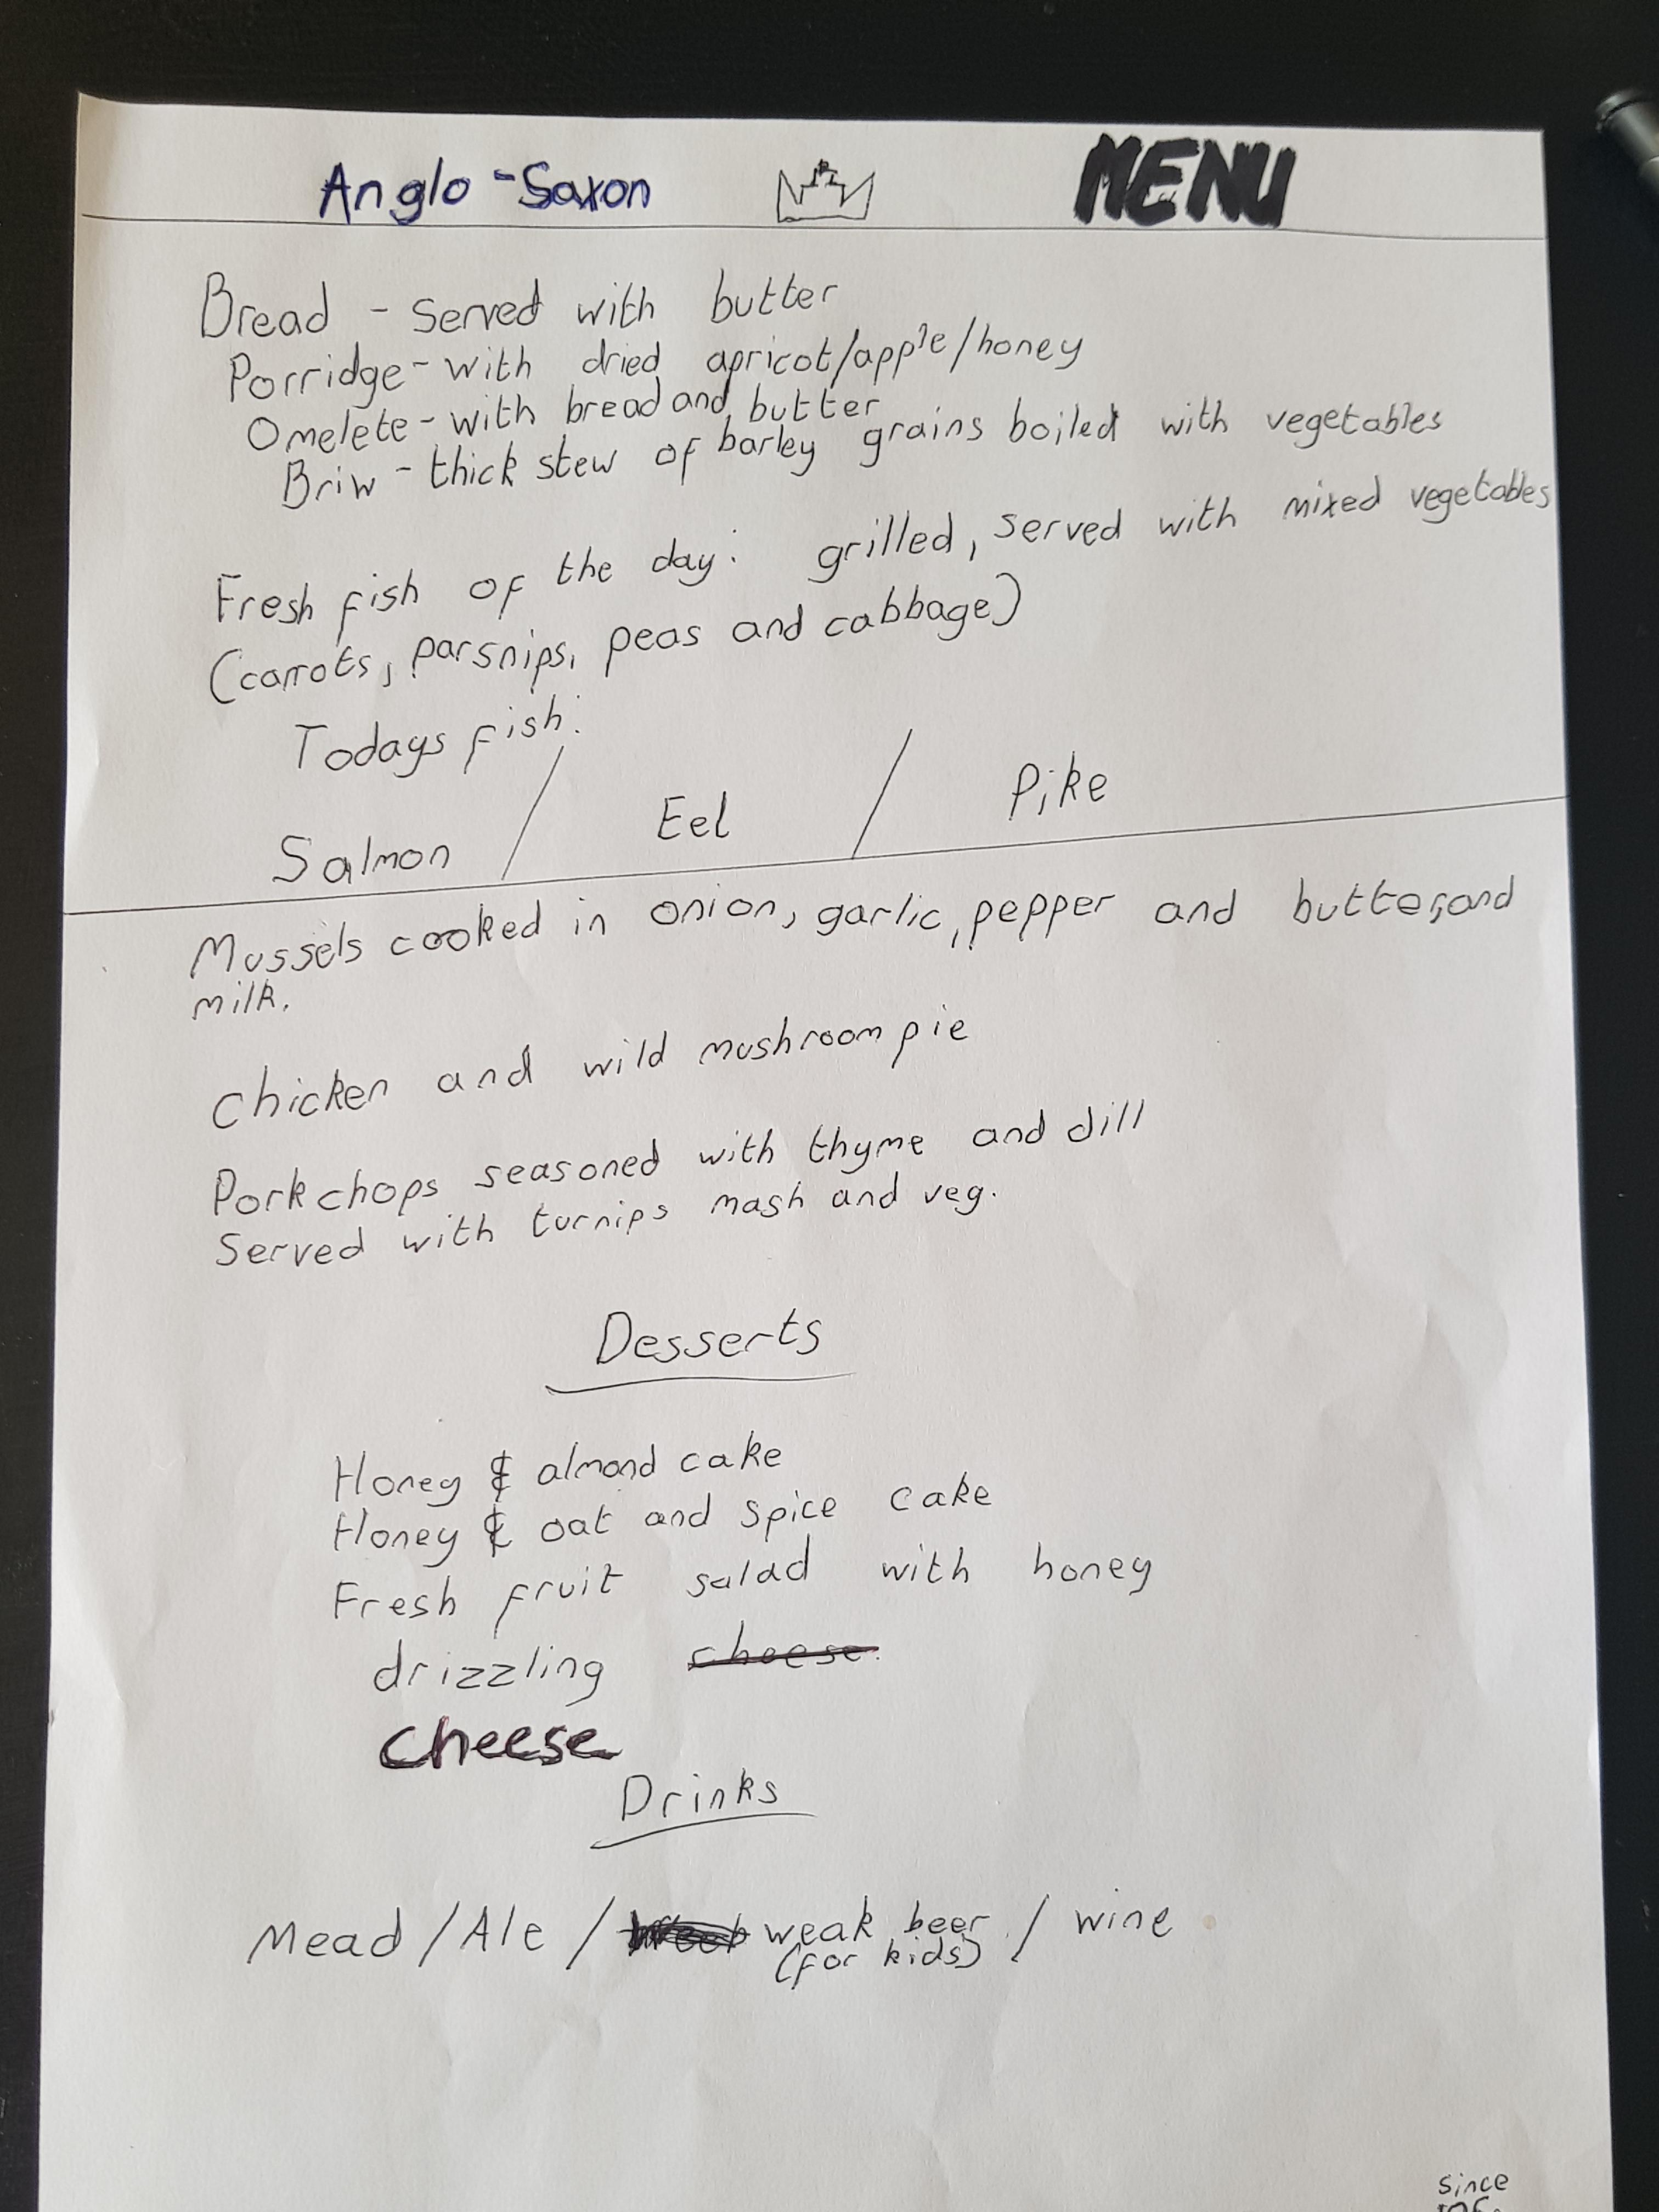 Anglo-Saxon MENU
Bread - served with butter
Porridge - with dried apricot/apple/honey
Omelete - with bread and butter
Briw - thick stew of barley grains boiled with vegetables
Fresh fish of the day: grilled, served with mixed vegetables
(carrots, parsnips, peas and cabbage)
Todays fish:
Salmon / Eel / Pike
Mussels cooked in onion, garlic, pepper and butter, and
milk.
chicken and wild mushroom pie
Pork chops seasoned with thyme and dill
Served with turnips mash and veg.
Desserts
Honey & almond cake
Honey & oat and spice cake
Fresh fruit salad with honey
drizzling cheese.
cheese
Drinks
Mead / Ale / weak beer / wine
(for kids)
since